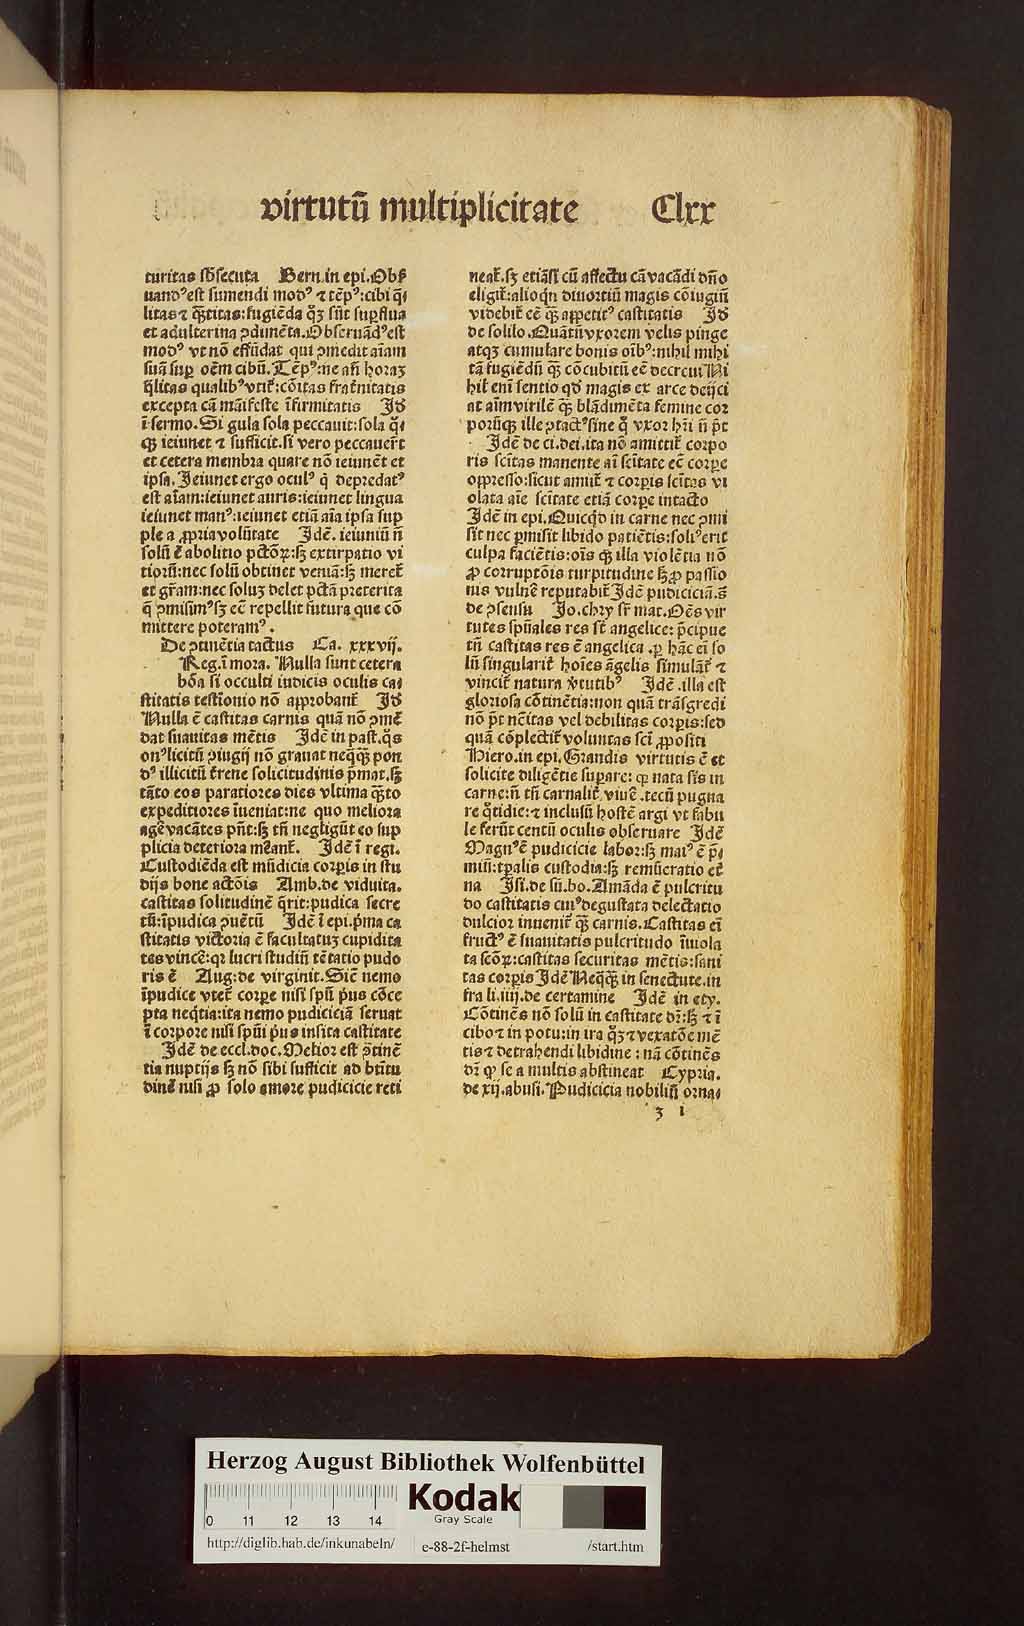 virtutū multiplicitate Clxx
turitas sb̄secuta Bern.in epi.Obẜ
uandꝰ est sumendi modꝰ ⁊ tēpꝰ:cibi q̄⸗
litas ⁊ q̄ꝫtitas:fugiēda qͥꝫ sūt suꝑflua
et adulterina ꝯdimēta.Obseruādꝰ est
modꝰ vt nō effūdat qui ꝯmedit aīam
suā suꝑ oēm cibū.Tēpꝰ:ne añ horaꝫ
q̄litas qualibꝰ vtiť:cōitas fraťnitatis
excepta cā māifeste īfirmitatis Jd
ī sermo.Si gula sola peccauit:sola qͥ⸗
qꝫ ieiunet ⁊ sufficit.si vero peccauerūt
et cetera membra quare nō ieiunēt et
ipsa.Jeiunet ergo oculꝰ qͥ depredatꝰ
est aīam:ieiunet auris:ieiunet lingua
ieiunet manꝰ:ieiunet etiā aīa ipsa sup
ple a ꝓpria volūtate Jdē.ieiuniū ñ
solū ē abolitio pctōꝝ:sꝫ extirpatio vi
tiorū:nec solū obtinet veniā:sꝫ mereť
et gr̄am:nec soluꝫ delet pctā preterita
q̄ ꝯmisimꝰ sꝫ eē repellit futura que cō
mittere poteramꝰ.
De ꝯtinētia tactus Ca. xxxvij.
Reg.ī mora. Nulla sunt cetera
bōa si occulti iudicis oculis ca⸗
stitatis testīonio nō approbanť Jd
Nulla ē castitas carnis quā nō ꝯmē
dat suauitas mētis Jdē in past.qͦs
onꝰ licitū ꝯiugij nō grauat neq̄q̄ꝫ pon
dꝰ illicitū ťrene solicitudinis p̄mat.sꝫ
tāto eos paratiores dies vltima q̄ꝫto
expeditiores īueniat:ne quo meliora
agē vacātes pn̄t:sꝫ tñ negligūt eo sup
plicia deteriora mēanť. Jdē ī regi.
Custodiēda est mūdicia corꝑis in stu
dijs bone actōis Amb.de viduita.
castitas solitudinē q̄rit:pudica secre
tū:īpudica ꝯuētū Jdē ī epi.p̄ma ca
stitatis victoria ē facultatuꝫ cupidita
tes vincē:qꝛ lucri studiū tētatio pudo
ris ē Aug:de virginit.Sicē nemo
īpudice vteť corꝑe nisi spū p̄us cōce
pta neq̄tia:ita nemo pudiciciā seruat
ī corpore nisi spūi p̄us insita castitate
Jdē de eccl.doc.Melior est ꝯtinē
tia nuptijs sꝫ nō sibi sufficit ad btītu
dinē nisi ꝓ solo amore pudicicie reti
neať.sꝫ etiāsi cū affectu cā vacādi dn̄o
eligiť:alioqͥn diuortiū magis cōiugiū
videbiť eē q̄ꝫ appetitꝰ castitatis Jd
de solilo.Quātū vxorem velis pinge
atqꝫ cumulare bonis oībꝰ:nihil mihi
tā fugiēdū q̄ꝫ cōcubitū eē decreui Ni
hil enī sentio qd̄ magis ex arce deijci
at aīm virilē q̄ꝫ blādimēta femine cor
porūqꝫ ille ꝯtactꝰ sine qͦ vxor hr̄i ñ pōt
Jdē de ci.dei.ita nō amittiť corpo
ris scītas manente aī scītate eē corꝑe
oppresso:sicut amitť ⁊ corꝑis scītas vi
olata aīe scītate etiā corꝑe intacto
Jdē in epi.Quicqͥd in carne nec ꝯmi
sit nec ꝑmisit libido patiētis:soliꝰ erit
culpa faciētis:oīs qꝫ illa violētia nō
ꝓ corruptōis turpitudine sꝫ ꝓ passio
nis vulnē reputabiť Jdē pudiciciā.s̄
de ꝯsensu Jo.chry sr̄ mat.Oēs vir
tutes spūales res sūt angelice: p̄cipue
tñ castitas res ē angelica .ꝑ hāc eī so
lū singulariť hoīes āgelis simulāť ⁊
vinciť natura ꝟtutibꝰ Jdē .illa est
gloriosa cōtinētia:non quā trāsgredi
nō pōt nēitas vel debilitas corꝑis:sed
quā cōplectiť voluntas scī ꝓpositi
Hiero.in epi.Grandis virtutis ē et
solicite diligētie suꝑare: qꝫ nata sīs in
carne:ñ tñ carnaliť viuē .tecū pugna
re qͦtidie:⁊ inclusū hostē argi vt fabu
le ferūt centū oculis obseruare Jdē
Magnꝰ ē pudicicie labor:sꝫ maiꝰ ē p̄⸗
miū:tꝑalis custodia:sꝫ remūeratio eť
na Jsi.de sū.bo.Amāda ē pulcritu
do castitatis cuiꝰ degustata delectatio
dulcior inueniť q̄ꝫ carnis.Castitas eī
fructꝰ ē suauitatis pulcritudo īuiola
ta scōꝝ:castitas securitas mētis:sani
tas corꝑis Jdē Neq̄q̄ꝫ in senectute.in
fra li.iiij.de certamine Jdē in ety.
Cōtinēs nō solū in castitate dr̄:sꝫ ⁊ ī
cibo ⁊ in potu:in ira qͦꝫ ⁊ vexatōe mē
tis ⁊ detrahendi libidine : nā cōtinēs
dr̄ qꝫ se a multis abstineat Cypria.
de xij.abusi.Pudicicia nobiliū orna⸗
z i
Herzog August Bibliothek Wolfenbüttel
0 11 12 13 14
Kodak
Gray Scale
http://diglib.hab.de/inkunabeln/ e-88-2f-helmst /start.htm